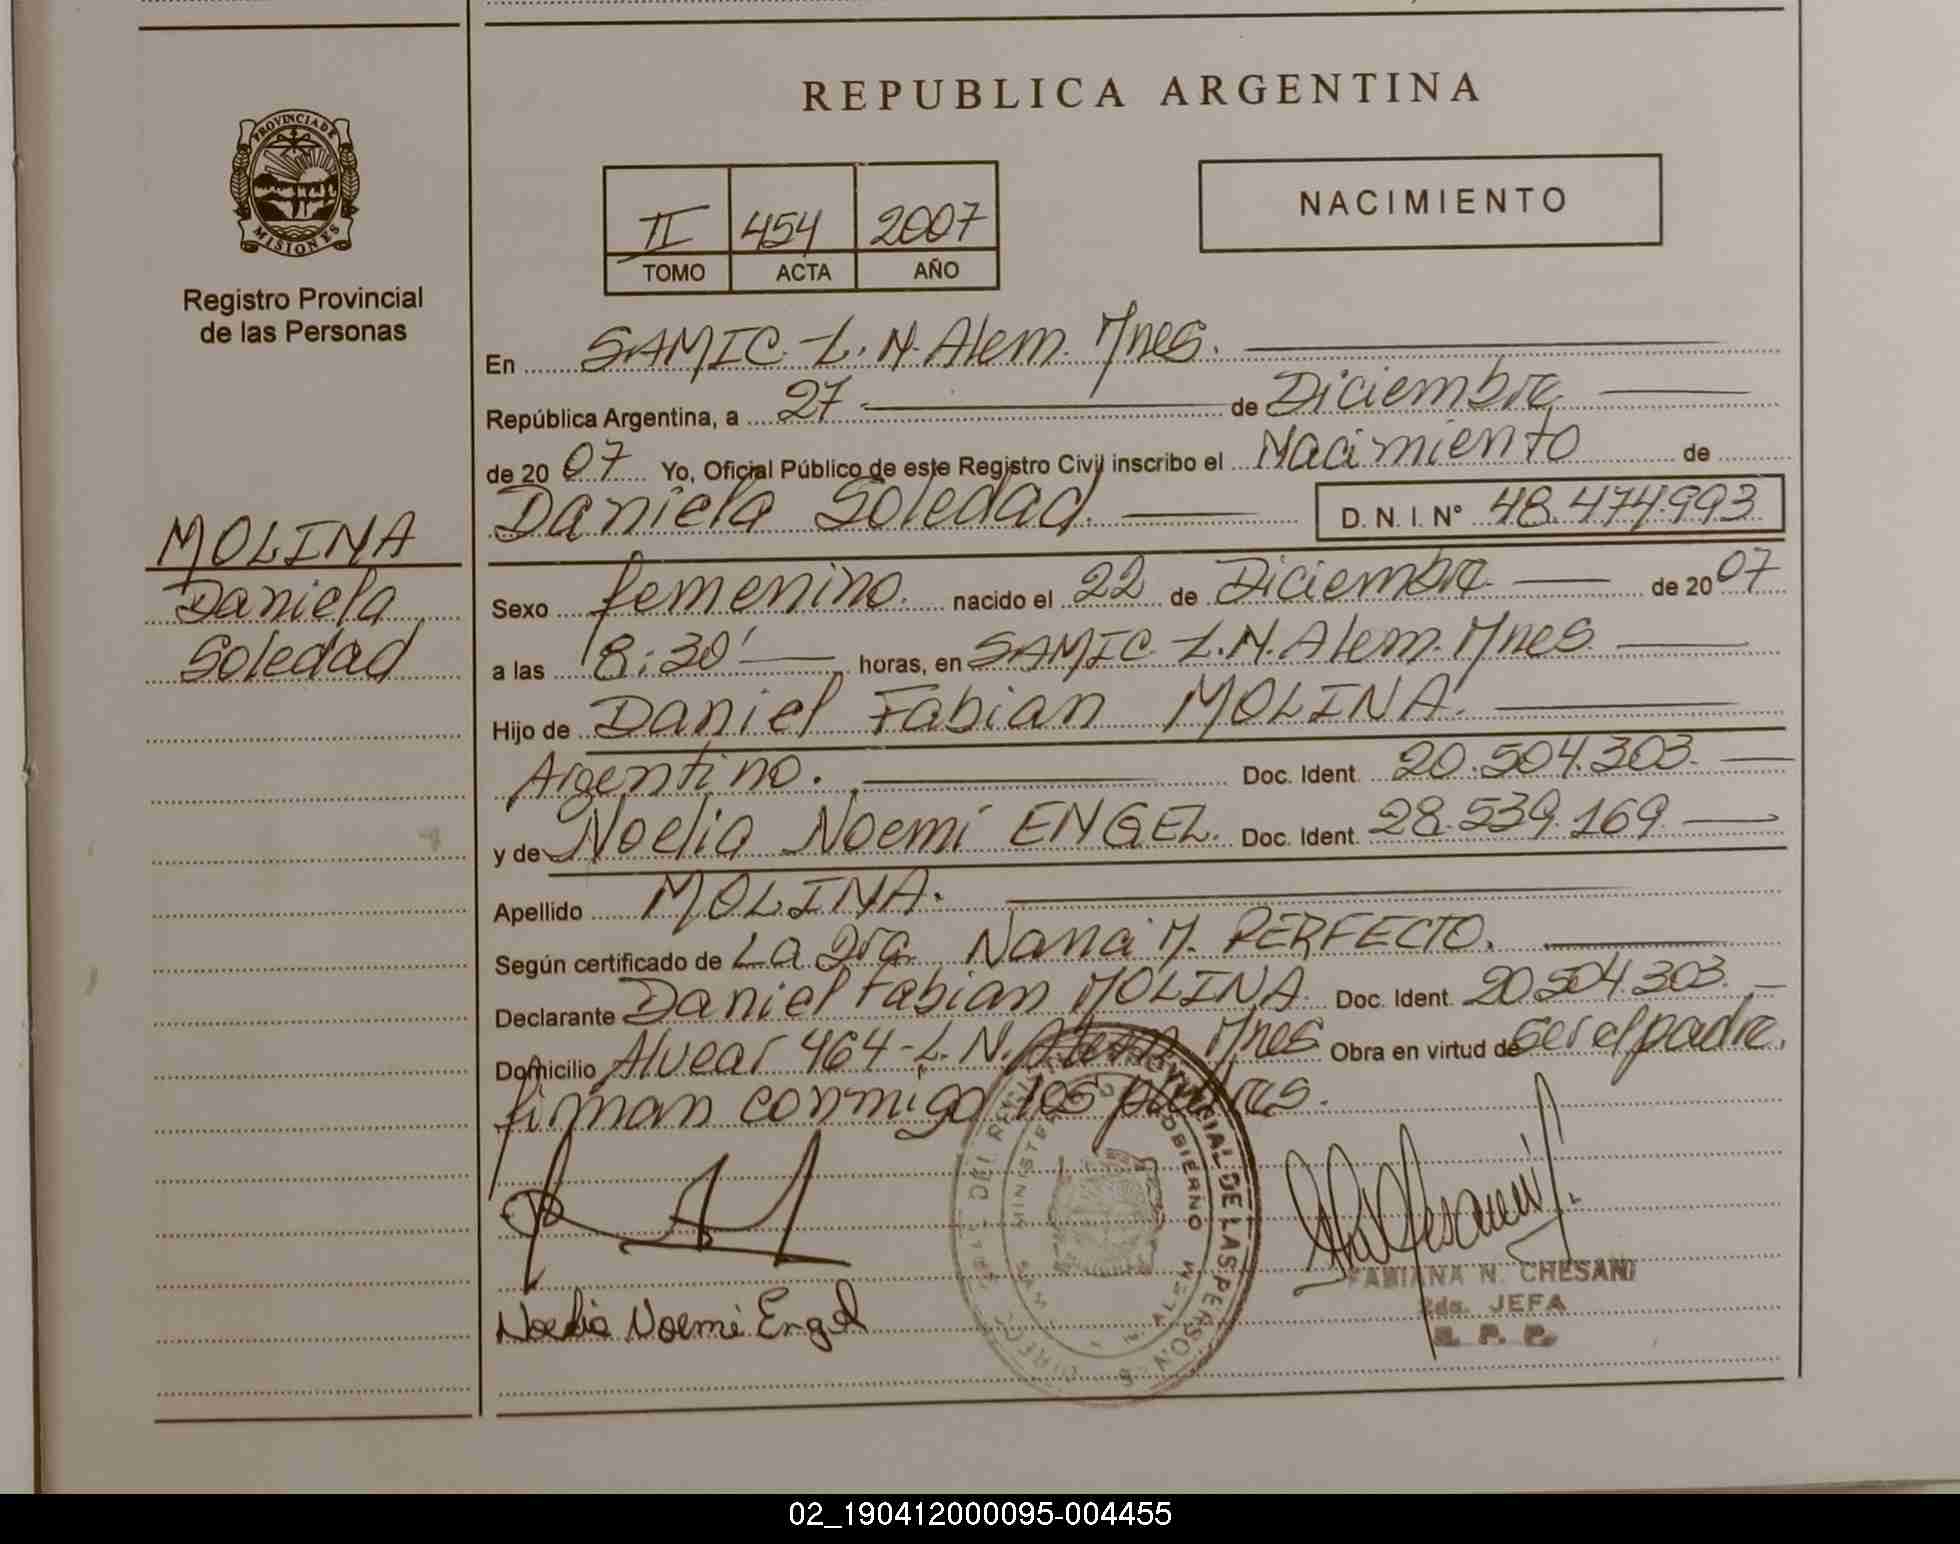 REPUBLICA ARGENTINA
PROVINCIA DE
MISIONES
Registro Provincial
de las Personas
II 454 2007
TOMO ACTA AÑO
NACIMIENTO
En SAMIC. L. N. Alem. Mnes.
República Argentina, a 27 de Diciembre
de 20 07 Yo, Oficial Público de este Registro Civil inscribo el Nacimiento de
Daniela Soledad. D. N. I. Nº 48.474.993
MOLINA
Daniela
Soledad
Sexo femenino. nacido el 22 de Diciembre de 20 07
a las 18:30' horas, en SAMIC. L.N. Alem. Mnes
Hijo de Daniel Fabian MOLINA.
Argentino. Doc. Ident. 20.504.303.
y de Noelia Noemí ENGEL. Doc. Ident. 28.539.169
Apellido MOLINA.
Según certificado de La Dra. M. PERFECTO.
Declarante Daniel Fabian MOLINA. Doc. Ident. 20.504.303.
Domicilio Alvear 464-L. N. Alem Mnes Obra en virtud de ser el padre.
firman conmigo los padres.
Noelia Noemi Engel
FABIANA N. CHESANI
2da. JEFA
R. P. P.
PROVINCIAL DE LAS PERSONAS
MINISTERIO DE GOBIERNO
ALEM
02_190412000095-004455